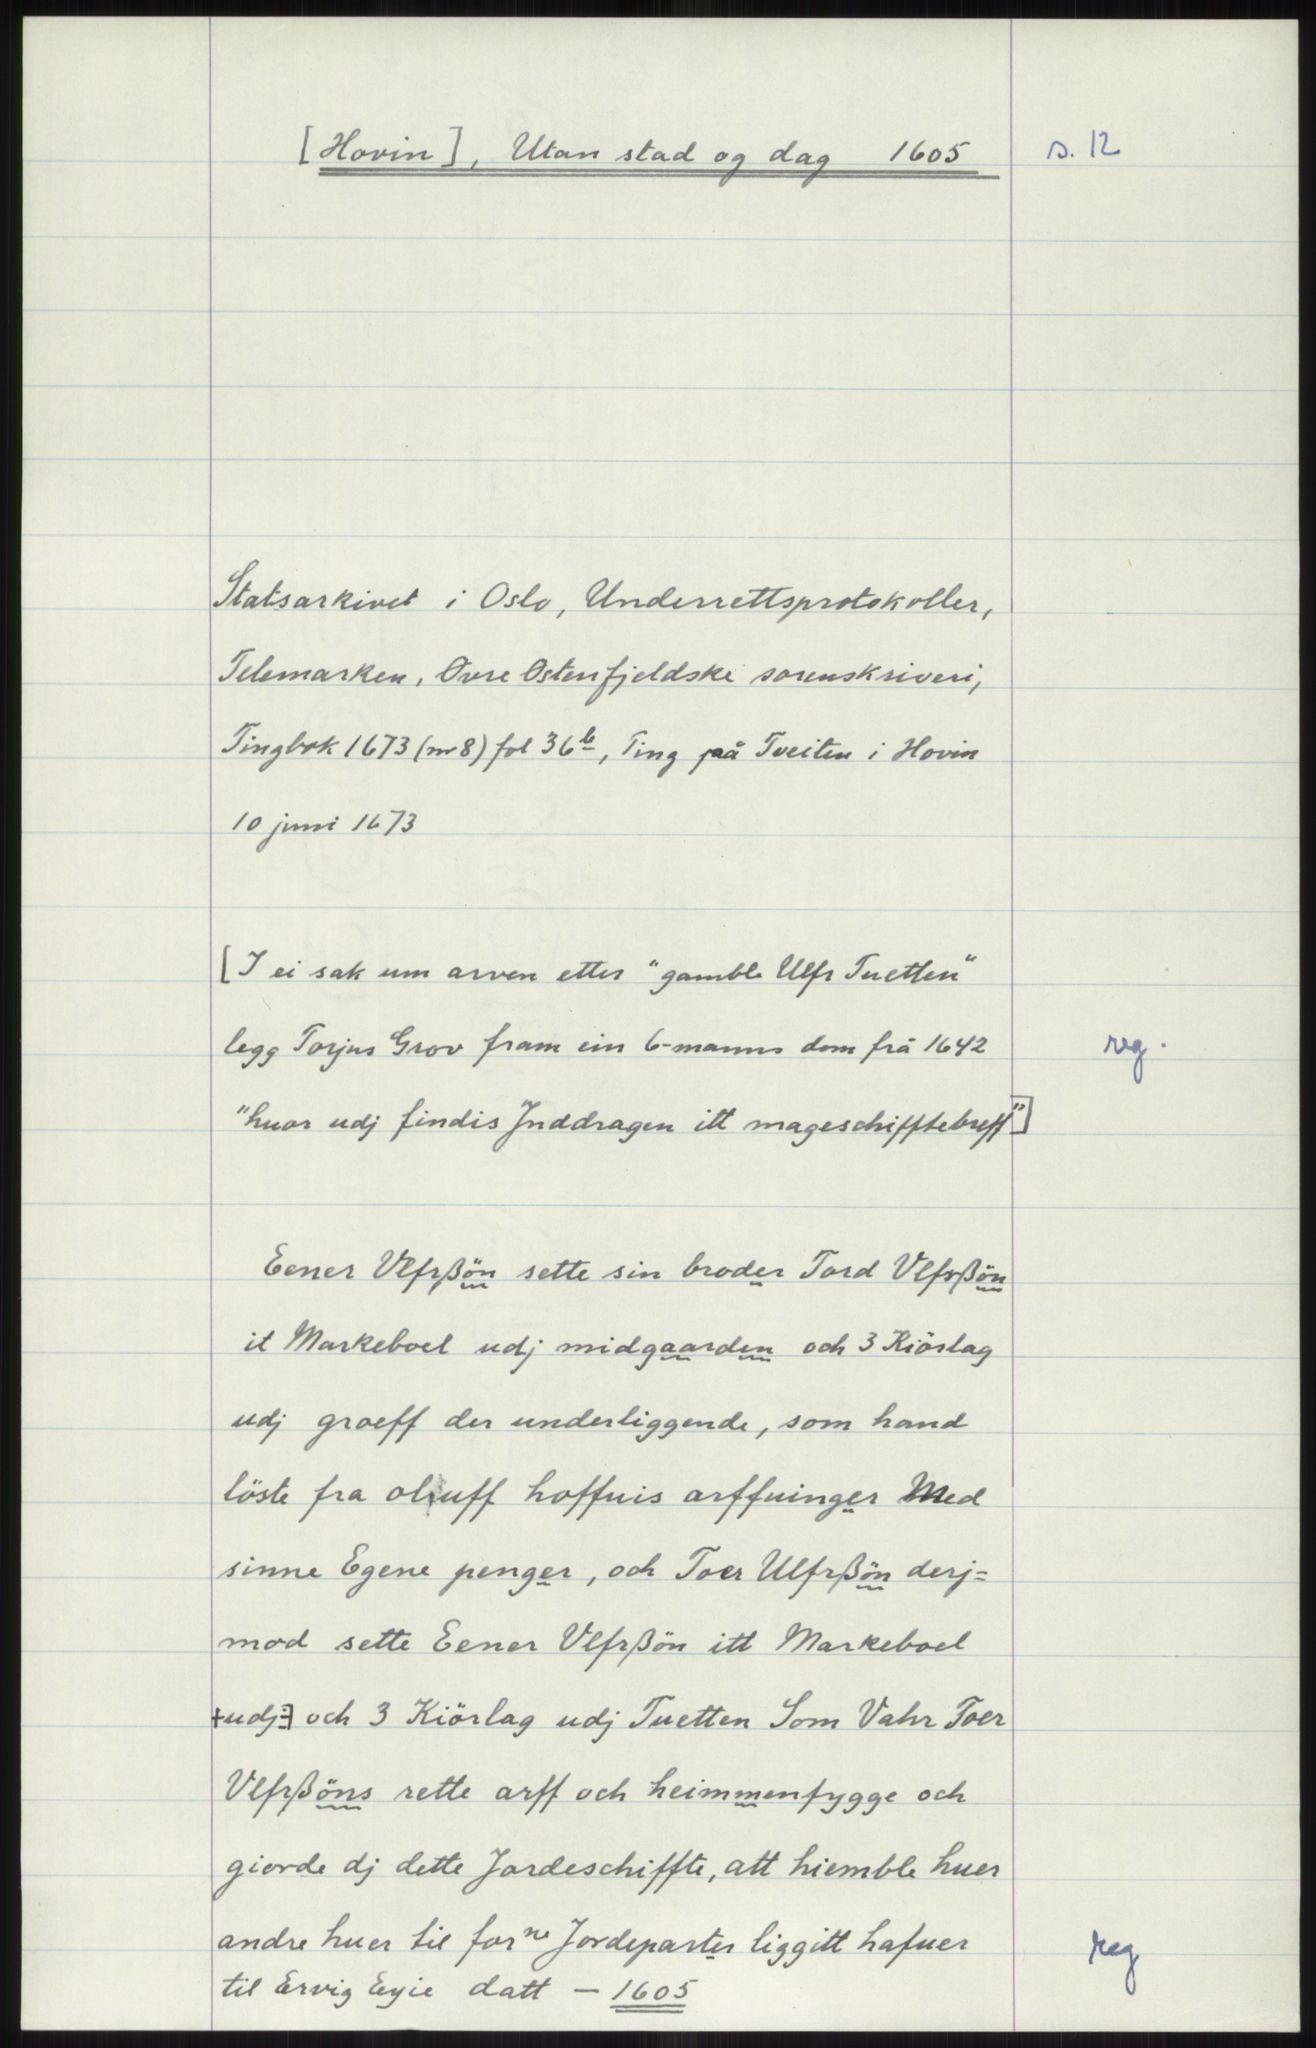 [Hovin], Utan stad og dag 1605 s. 12
Statsarkivet i Oslo, Underrettsprotokoller,
Telemarken, Øvre Østenfjeldske sorenskriveri,
Tingbok 1673 (nr 8) fol 36b, Ting på Tveiten i Hovin
10 juni 1673
[I ei sak um arven etter "gamble Ulfr Tuetten"
legg Torjus Grov fram ein 6-manns dom frå 1642 reg.
"huor udj findis Inddragen itt mageschifftebreff"]
Eener Vlfrßön sette sin broder Tord Vlfrßön
it Markeboel udj midgaarden och 3 Kiörlag
udj groeff der underliggende, som hand
löste fra oluff hoffuis arffuinger Med
sinne Egene penger, och Toer Ulfrßön derj=
mod sette Eener Vlfrßön itt Markeboel
[udj] och 3 Kiörlag udj Tuetten Som Vahr Toer
Vlfrßöns rette arff och heimmenfygge och
giorde dj dette Jordeschiffte, att hiemble huer
andre huer til forne Jordeparter liggitt hafuer reg
til Ervig Eyie datt – 1605